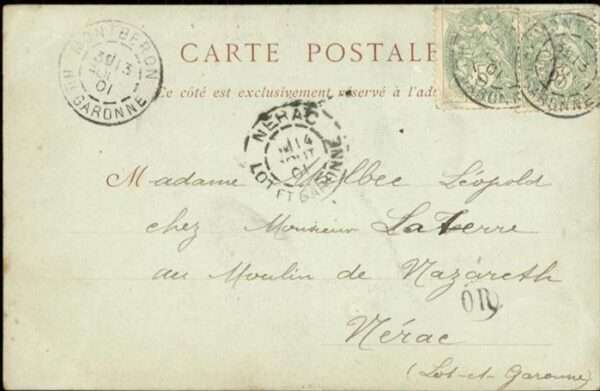 MONTBERON
Hte GARONNE
13
01
CARTE POSTALE
Ce côté est exclusivement réservé à l'adr
GARONNE
NERAC
14
AOUT
01
LOT ET GARONNE
Madame Léopold
chez Monsieur Laterre
au Moulin de Nazareth
OR
Nérac
(Lot-et-Garonne)